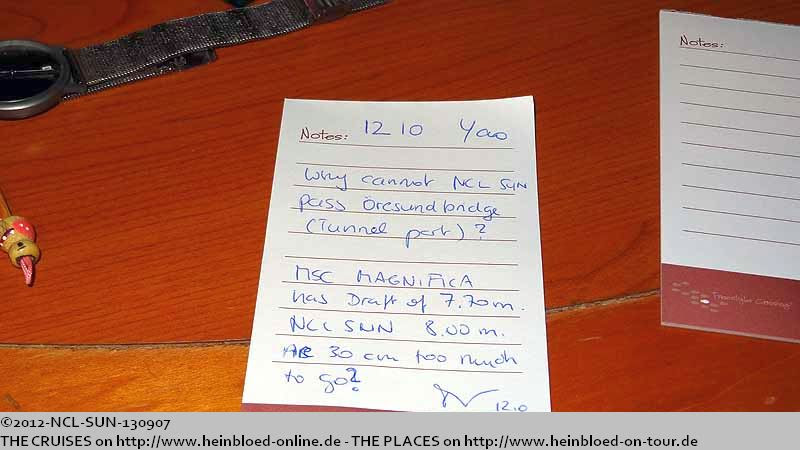 Notes: 1210 Yao
Why cannot NCL SUN
pass Öresundbridge
(Tunnel part)?
MSC MAGNIFICA
has Draft of 7.70 m.
NCL SUN 8.00 m.
Are 30 cm too much
to go?
1210
Notes:
Freestyle Cruising
©2012-NCL-SUN-130907
THE CRUISES on http://www.heinbloed-online.de - THE PLACES on http://www.heinbloed-on-tour.de